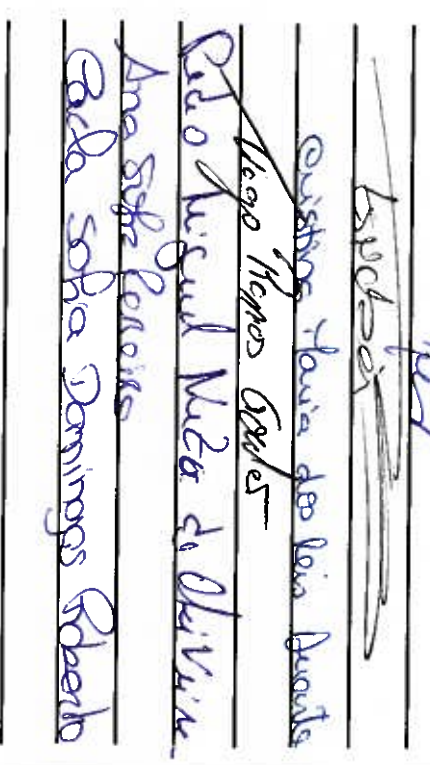 Cristina Maria dos Reis Duarte
Tiago Ramos Gomes
Pedro Miguel Neto de Oliveira
Ana Sofia Ferreira
Carla Sofia Domingos Roberto